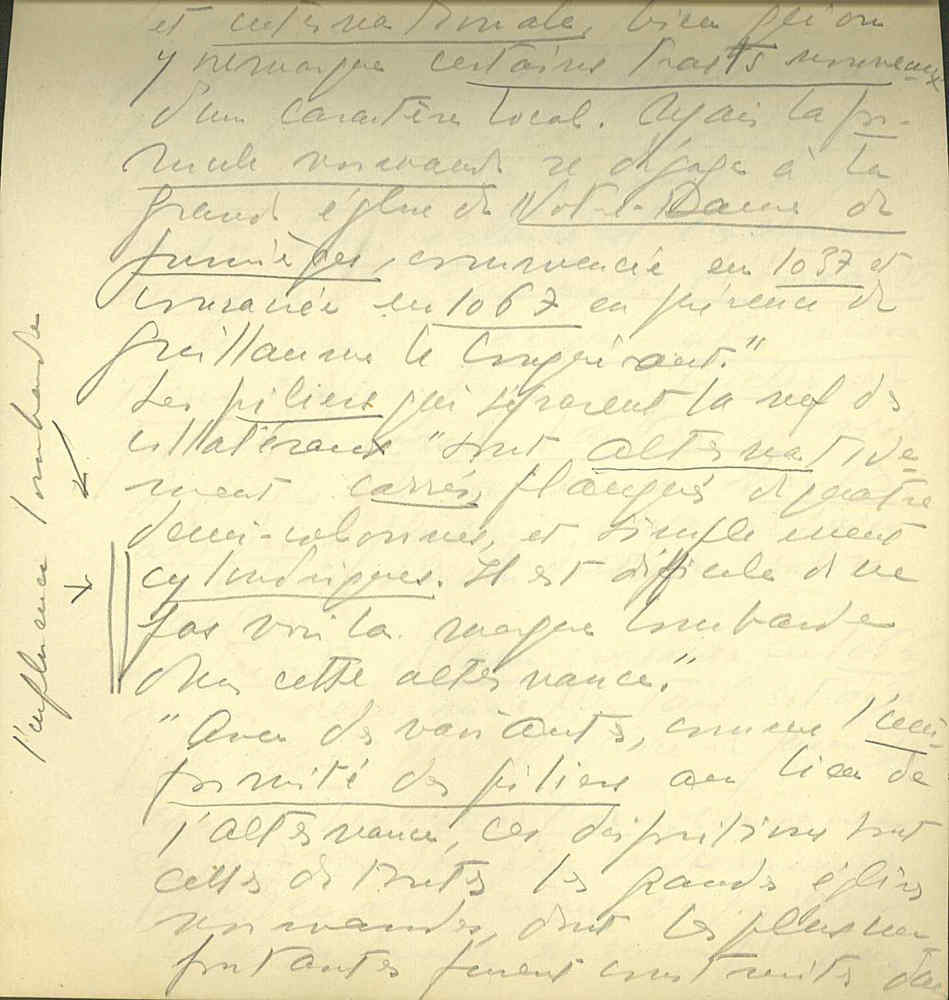 et internationale, bien qu'on
y remarque certains traits nouveaux
d'un caractère local. Mais la for-
mule normande se dégage à la
grande église de Notre-Dame de
Jumièges, commencée en 1037 et
consacrée en 1067 en présence de
Guillaume le Conquérant."
Les piliers qui séparent la nef des
collatéraux "sont alternative-
ment carrés, flanqués de quatre
demi-colonnes, et simplement
cylindriques. Il est difficile de ne
pas voir la marque lombarde
dans cette alternance."
"Avec des variantes, comme l'uni-
formité des piliers au lieu de
l'alternance, ces dispositions sont
celles de toutes les grandes églises
normandes, dont les plus im-
portantes furent construites dans
l'influence lombarde